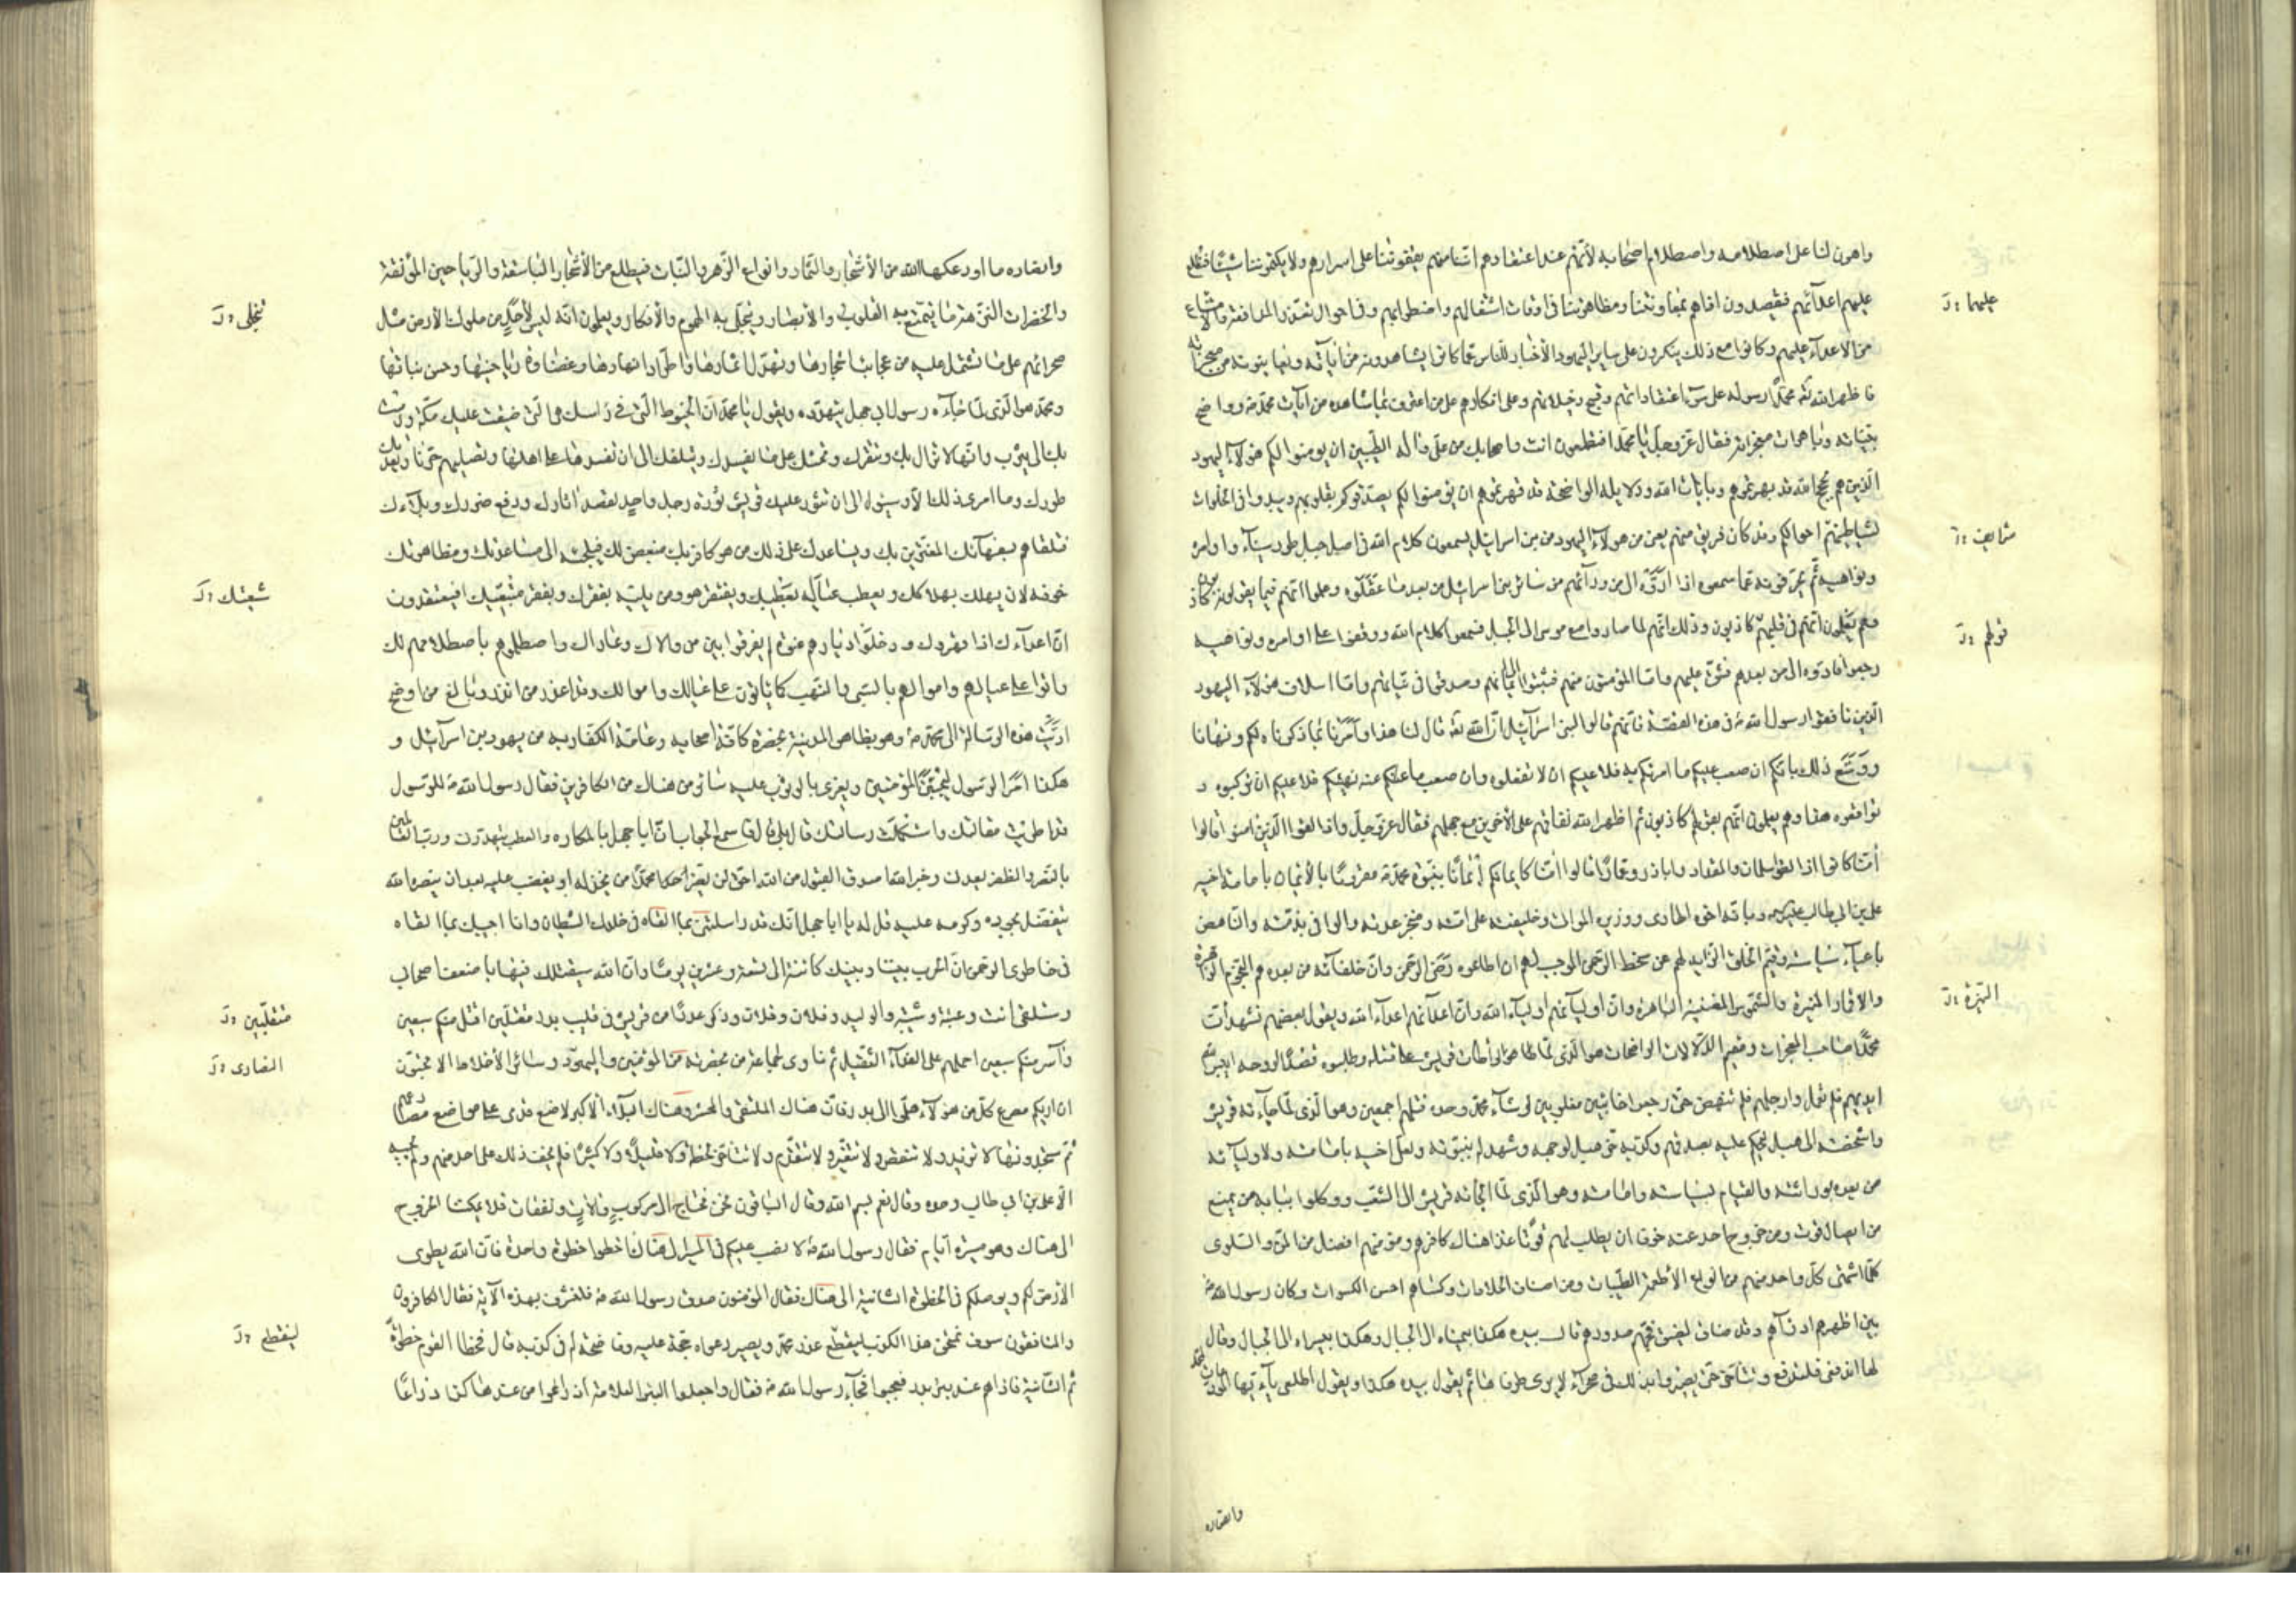 واهون لنا على اصطلامه واصطلام اصحابه لأنهم عند اعتقادهم اننا منهم يقفوننا على اسرارهم ولا يكتموننا شيئا فنطلع
عليهم اعدآئهم فيقصدون اذاهم بمعاونتنا ومظاهرتنا فى اوقات اشتغالهم واضطرابهم وفى احوال تعذر المدافعة والامتناع
من الاعدآء عليهم وكانوا مع ذلك ينكرون على ساير اليهود الأخبار للناس عما كانوا يشاهدونه من اياته ويعاينونه من معجزاته
فاظهر الله تع محمدا رسوله على سوء اعتقاداتهم وقبح دخيلاتهم وعلى انكارهم على من اعترف بما شاهده من آيات محمد ص وواضح
بيناته وباهرات معجزاته فقال عز وجل يا محمد افتطمعون انت واصحابك من على وآله الطيبين ان يؤمنوا لكم هؤلآء اليهود
الذين هم بحجج الله قد بهرتموهم وبايات الله ودلايله الواضحة قد قهرتموهم ان يؤمنوا لكم يصدقوكم بقلوبهم ويبدوا فى الخلوات
لشياطينهم احوالكم وقد كان فريق منهم يعنى من هؤلآء اليهود من بنى اسرائيل يسمعون كلام الله فى اصل جبل طور سينآء واوامره
ونواهيه ثم يحرفونه عما سمعوه اذا ادوه الى من ورآئهم من سائر بنى اسرائيل من بعد ما عقلوه وعلموا انهم فيما يقولونه كاذبون
وهم يعلمون انهم فى قيلهم كاذبون وذلك انهم لما صاروا مع موسى الى الجبل فسمعوا كلام الله ووقفوا على اوامره ونواهيه
رجعوا فادوه الى من بعدهم فشق عليهم واما المؤمنون منهم فثبتوا على ايمانهم وصدقوا فى نياتهم واما اسلاف هؤلآء اليهود
الذين نافقوا رسول الله ص فى هذه القصة فانهم قالوا لبنى اسرآئيل ان الله تع قال لنا هذا وامرنا بما ذكرناه لكم ونهانا
ووسع ذلك بانكم ان صعب عليكم ما امرتكم به فلا عليكم ان لا تفعلوه وان صعب ما عنه نهيتكم فلا عليكم ان تركبوه و
تواقعوه هذا وهم يعلمون انهم بقولهم كاذبون ثم اظهر الله نفاقهم على الآخرين مع جهلهم فقال عز وجل واذا لقوا الذين امنوا قالوا
امنا كانوا اذا لقوا سلمان والمقداد واباذر وعمارا قالوا امنا كايمانكم ايمانا بنبوة محمد ص مقرونا بالأيمان بامامة اخيه
على بن ابى طالب وبانه اخوه الهادى ووزيره الموات وخليفته على امته ومنجز عدته والوافى بذمته والناهض
باعبآء سياسته وقيم الخلق الذايد لهم عن سخط الرحمن الموجب لهم ان اطاعوه رضى الرحمن وان خلفآئه من بعده هم النجوم الزاهرة
والاقمار المنيرة والشموس المضيئة الباهرة وان اوليآئهم اوليآء الله وان اعدآئهم اعدآء الله ويقول بعضهم نشهد أن
محمدا صاحب المعجزات ومقيم الدلالات الواضحات هو الذى لما تواطأت قريش على قتله وطلبوه فقدا لروحه ايبس الله
ايديهم فلم تعمل وارجلهم فلم تنهض حتى رجعوا خائبين مغلوبين لو شآء محمد وحده قتلهم اجمعين وهو الذى لما جآءته قريش
واشخصته الى هبل ليحكم عليه بصدقهم وكذبه خر هبل لوجهه وشهد له بنبوته ولعلى اخيه بامامته ولاوليآئه
من بعده بوراثته والقيام بسياسته وامامته وهو الذى لما الجأته قريش الى الشعب ووكلوا ببابه من يمنع
من ايصال قوت ومن خروج احد عنه خوفا ان يطلب لهم قوتا غذا هناك كافرهم ومؤمنهم افضل من المن والسلوى
كلما اشتهى كل واحد منهم من انواع الأطعمة الطيبات ومن اصناف الحلاوات وكساهم احسن الكسوات وكان رسول الله ص
بين اظهرهم اذ رآهم وقد ضاق لضيق فجهم صدورهم قال بيده هكذا بيمناه الى الجبال وهكذا بيسراه الى الجبال وقال
لها اندفعى فتندفع وتتأخر حتى يصيروا بذلك فى صحرآء لا يرى طرفاها ثم يقول بيده هكذا ويقول اطلعى يا ايتها المودعات لمحمد
وانصاره
عليهما ؛ خ
شرايعه ؛ خ
قولهم ؛ خ
النيرة ؛ خ
وانصاره ما اودعكها الله من الأشجار والثمار وانواع الزهر والنبات فيطلع من الأشجار الباسقة والرياحين المونقة
والخضرات النزهة ما يتمتع به القلوب والأبصار وينجلى به الهموم والأفكار ويعلمون انه ليس لأحد من ملوك الأرض مثل
صحرائهم على ما تشتمل عليه من عجايب اشجارها وتهدل اثمارها واطراد انهارها وغضارة رياحينها وحسن نباتها
ومحمد هو الذى لما جآءه رسول ابى جهل يتهدده ويقول يا محمد ان الخيوط التى فى راسك هى التى ضيقت عليك مكة ورمت
بك الى يثرب وانها لا تزال بك وتنفرك وتحثك على ما يفسدك ويتلفك الى ان تفسدها على اهلها وتصليهم حر نار تعديك
طورك وما ارى ذلك الا وسيؤل الى ان تثور عليك قريش ثورة رجل واحد لقصد اثارك ودفع ضررك وبلآءك
فتلقاهم بسفهآئك المغترين بك ويساعدك على ذلك من هو كافر بك مبغض لك فيلجئه الى مساعدتك ومظاهرتك
خوفه لان يهلك بهلاكك ويعطب عياله بعطبك ويفتقر هو ومن يليه بفقرك وبفقر متبعيك اذ يعتقدون
ان اعدآءك اذا قهروك ودخلوا ديارهم عنوة لم يفرقوا بين من والاك وعاداك واصطلموهم باصطلامهم لك
واتوا على عيالهم واموالهم بالسبى والنهب كما ياتون على عيالك واموالك وقد اعذر من انذر وبالغ من اوضح
اديت هذه الرسالة الى محمد ص وهو بظاهر المدينة بحضرة كافة اصحابه وعامة الكفار به من يهود بنى اسرآئيل و
هكذا امر الرسول ليجبن المؤمنين ويغرى بالوثوب عليه سائر من هناك من الكافرين فقال رسول الله ص للرسول
قد اطريت مقالتك واستكملت رسالتك قال بلى قال فاسمع الجواب ان ابا جهل بالمكاره والعطب يتهددنى ورب العالمين
بالنصر والظفر يعدنى وخبر الله اصدق والقبول من الله احق لن يضر محمدا من يخذله او يغضب عليه بعد ان ينصره الله
يتفضل بجوده وكرمه عليه قل له يا ابا جهل انك قد راسلتنى بما القاه فى خلدك الشيطان وانا اجيبك بما القاه
فى خاطرى الرحمن ان الحرب بيننا وبينك كائنة الى تسعة وعشرين يوما وان الله سيقتلك فيها باضعف اصحابى
وستلقى انت وعتبة وشيبة والوليد وفلان وفلان وذكر عددا من قريش فى قليب بدر مقتلين اقتل منكم سبعين
وآسر منكم سبعين احملهم على الفدآء الثقيل ثم نادى جماعة من بحضرته من المؤمنين واليهود وسائر الأخلاط الا تحبون
ان اريكم مصرع كل من هؤلآء هلموا الى بدر فان هناك الملتقى والمحشر وهناك البلآء الاكبر لاضع قدمى على مواضع مصارعهم
ثم ستجدونها لا تزيد ولا تنقص ولا تتغير ولا تتقدم ولا تتأخر لحظة ولا قليلا ولا كثيرا فلم يخف ذلك على احد منهم ولم يجبه
الا على بن ابى طالب وحده وقال نعم بسم الله وقال الباقون نحن نحتاج الى مركوب وآلات ونفقات فلا يمكننا الخروج
الى هناك وهو مسيرة ايام فقال رسول الله ص لا نصب عليكم فى المسير الى هناك اخطوا خطوة واحدة فان الله يطوى
الأرض لكم ويوصلكم فى الخطوة الثانية الى هناك فقال المؤمنون صدق رسول الله ص فلنتشرف بهذه الآية فقال الكافرون
والمنافقون سوف نمتحن هذا الكذب ليقطع عذر محمد ويصير دعواه حجة عليه وفاضحة له فى كذبه قال فخطا القوم خطوة
ثم الثانية فاذا هم عند بئر بدر فعجبوا فجآء رسول الله ص فقال اجعلوا البئر العلامة واذرعوا من عندها كذا ذراعا
تنجلى ؛ خ
شيعتك ؛ خ
منقلبين ؛ خ
النصارى ؛ خ
لينقطع ؛ خ